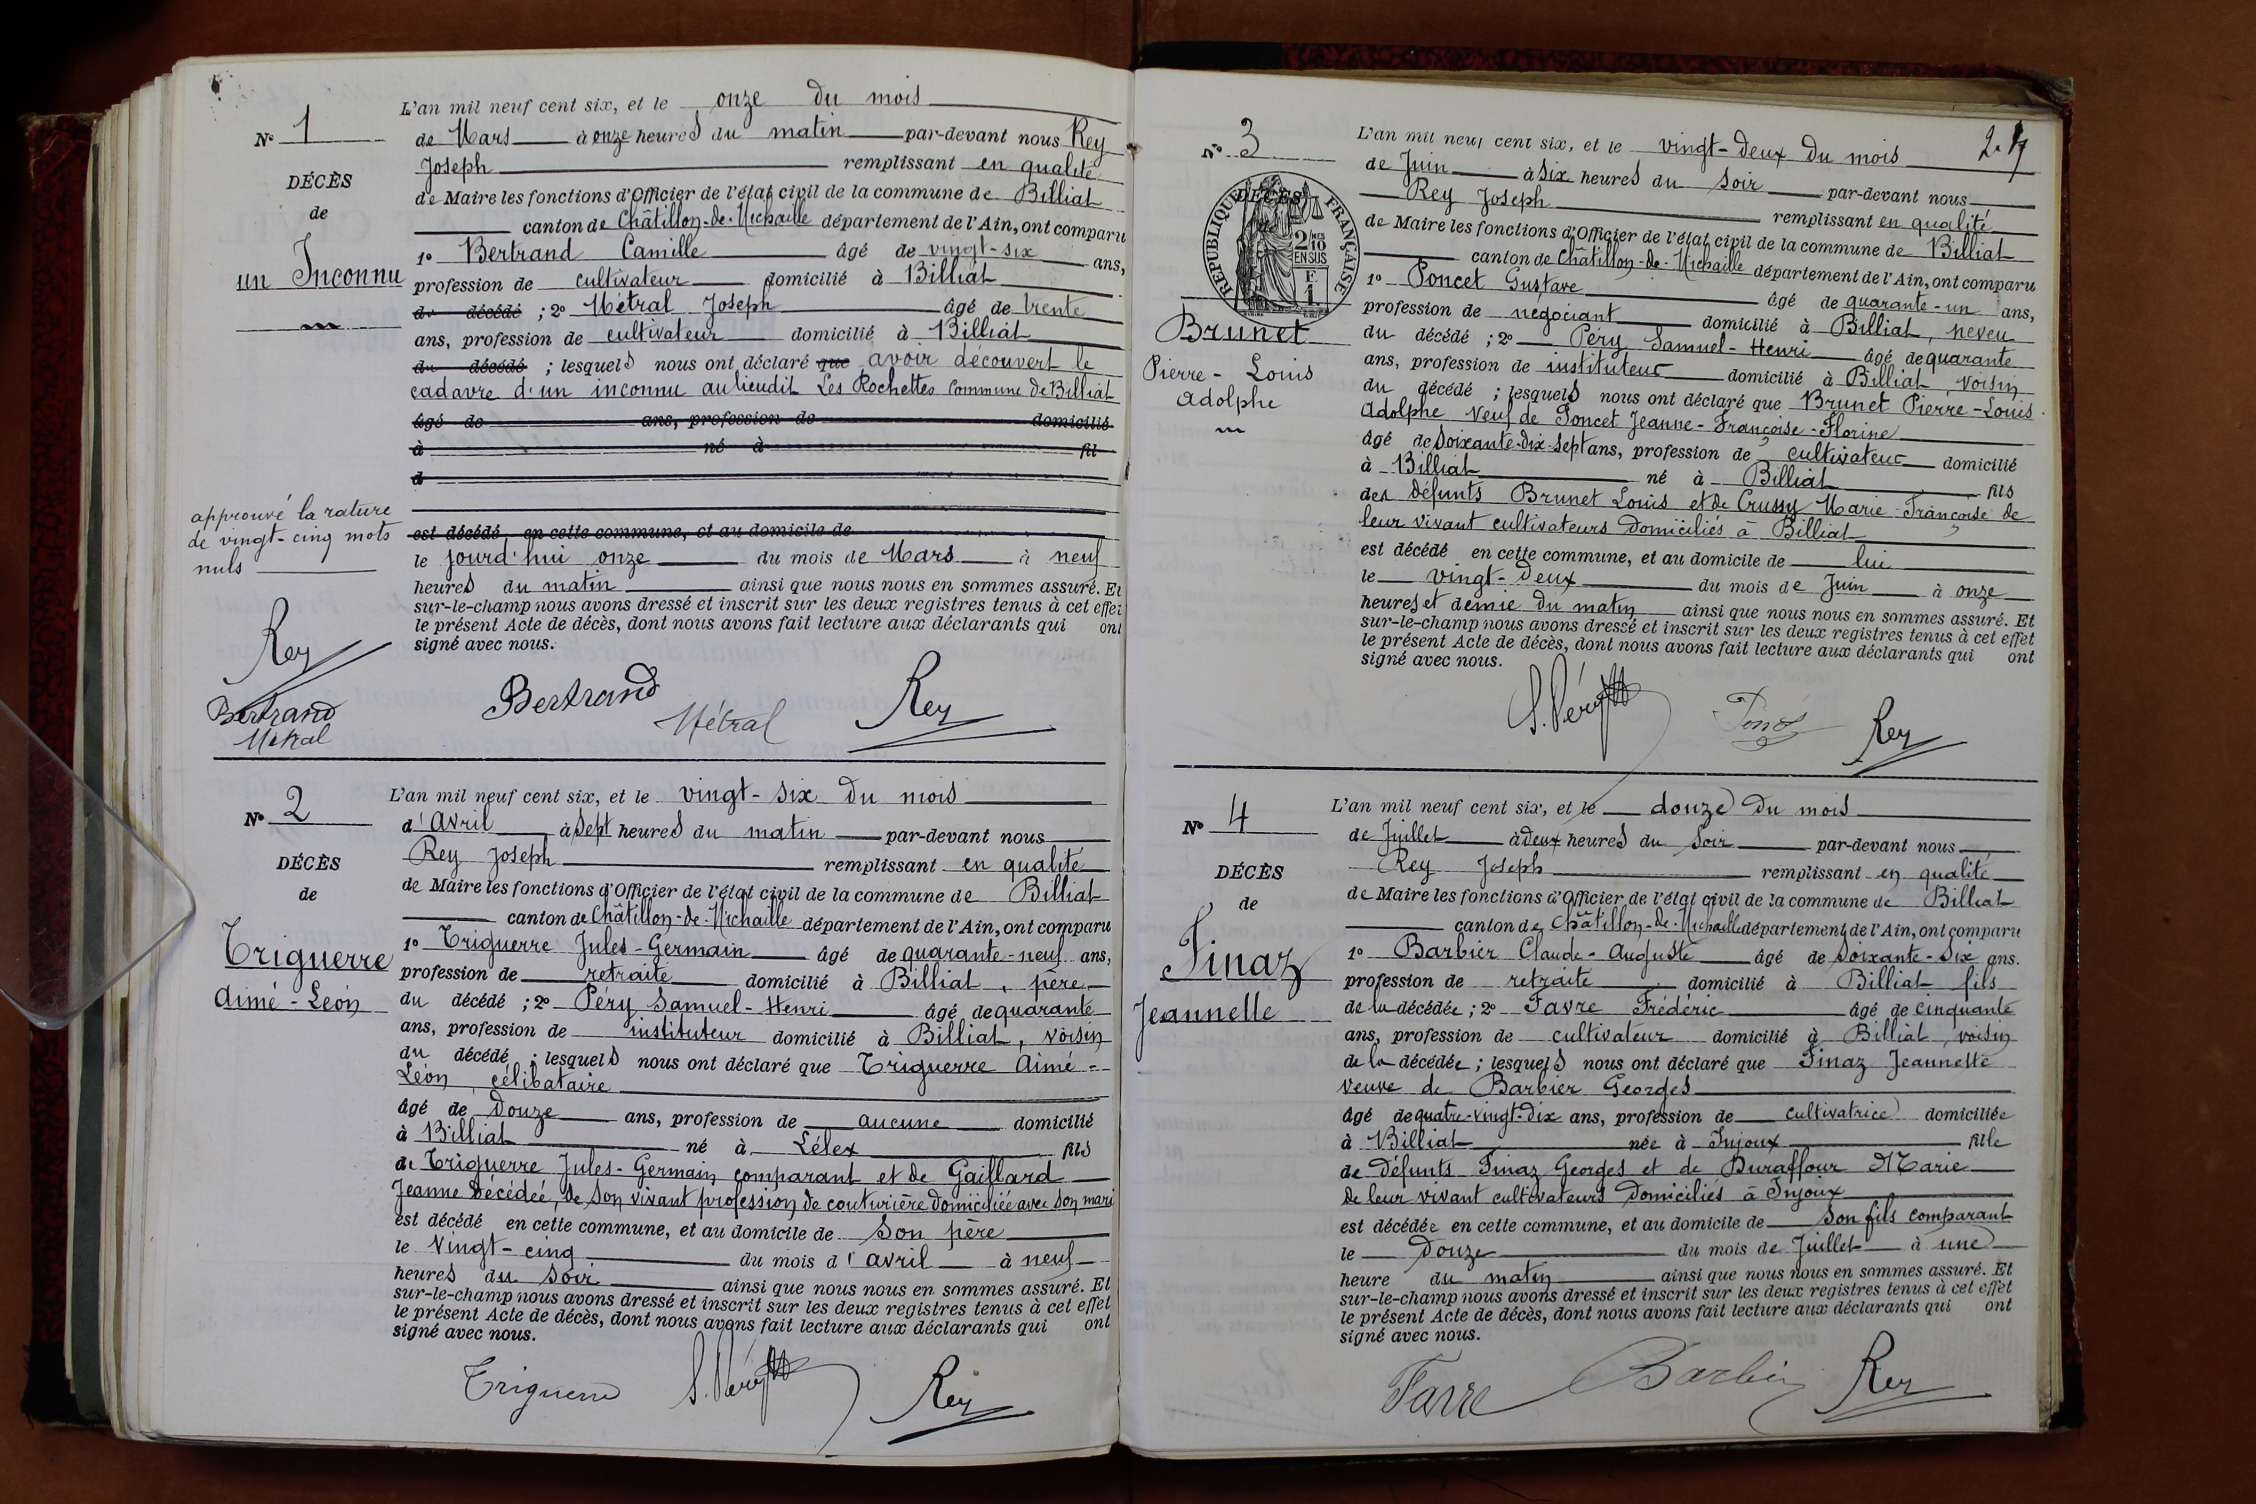 L'an mil neuf cent six, et le onze du mois
N° 1
de Mars à onze heures du matin par-devant nous Rey
Joseph remplissant en qualité
DÉCÈS
de Maire les fonctions d'Officier de l'état civil de la commune de Billiat
de
canton de Châtillon-de-Michaille département de l'Ain, ont comparu
un Inconnu
1° Bertrand Camille âgé de vingt-six ans,
profession de cultivateur domicilié à Billiat
du décédé ; 2° Métral Joseph âgé de trente
ans, profession de cultivateur domicilié à Billiat
du décédé ; lesquels nous ont déclaré que avoir découvert le
cadavre d'un inconnu au lieudit Les Rochettes commune de Billiat
âgé de ans, profession de domicilié
à né à fil
d
approuvé la rature
de vingt-cinq mots
nuls
est décédé en cette commune, et au domicile de
le jourd'hui onze du mois de Mars à neuf
heures du matin ainsi que nous nous en sommes assuré. Et
sur-le-champ nous avons dressé et inscrit sur les deux registres tenus à cet effet
le présent Acte de décès, dont nous avons fait lecture aux déclarants qui ont
signé avec nous.
Rey
Bertrand
Métral
Bertrand Métral Rey
N° 2
L'an mil neuf cent six, et le vingt-six du mois
d'Avril à sept heures du matin par-devant nous
Rey Joseph remplissant en qualité
DÉCÈS
de Maire les fonctions d'Officier de l'état civil de la commune de Billiat
de
canton de Châtillon-de-Michaille département de l'Ain, ont comparu
Triguerre
Aimé-Léon
1° Triguerre Jules-Germain âgé de quarante-neuf ans,
profession de retraité domicilié à Billiat, père
du décédé ; 2° Péry Samuel-Henri âgé de quarante
ans, profession de instituteur domicilié à Billiat, voisin
du décédé ; lesquels nous ont déclaré que Triguerre Aimé-
Léon, célibataire
âgé de Douze ans, profession de aucune domicilié
à Billiat né à Lélex fils
de Triguerre Jules-Germain comparant et de Gaillard
Jeanne Décédée, de son vivant profession de couturière domiciliée avec son mari
est décédé en cette commune, et au domicile de son père
le vingt-cinq du mois d'avril à neuf
heures du soir ainsi que nous nous en sommes assuré. Et
sur-le-champ nous avons dressé et inscrit sur les deux registres tenus à cet effet
le présent Acte de décès, dont nous avons fait lecture aux déclarants qui ont
signé avec nous.
Triguerre S. Péry Rey
2.
N° 3
L'an mil neuf cent six, et le vingt-deux du mois
de Juin à six heures du soir par-devant nous
Rey Joseph remplissant en qualité
DÉCÈS
RÉPUBLIQUE FRANÇAISE
2/10
EN SUS
F
1
de Maire les fonctions d'Officier de l'état civil de la commune de Billiat
canton de Châtillon-de-Michaille département de l'Ain, ont comparu
1° Poncet Gustave âgé de quarante-un ans,
profession de négociant domicilié à Billiat, neveu
Brunet
Pierre-Louis
Adolphe
du décédé ; 2° Péry Samuel-Henri âgé de quarante
ans, profession de instituteur domicilié à Billiat voisin
du décédé ; lesquels nous ont déclaré que Brunet Pierre-Louis
Adolphe veuf de Poncet Jeanne-Françoise-Florine
âgé de soixante-dix-sept ans, profession de cultivateur domicilié
à Billiat né à Billiat fils
des défunts Brunet Louis et de Crussy Marie-Françoise de
leur vivant cultivateurs domiciliés à Billiat
est décédé en cette commune, et au domicile de lui
le vingt-deux du mois de Juin à onze
heures et demie du matin ainsi que nous nous en sommes assuré. Et
sur-le-champ nous avons dressé et inscrit sur les deux registres tenus à cet effet
le présent Acte de décès, dont nous avons fait lecture aux déclarants qui ont
signé avec nous.
S. Péry Rey
N° 4
L'an mil neuf cent six, et le douze du mois
de Juillet à deux heures du soir par-devant nous
DÉCÈS
Rey Joseph remplissant en qualité
de
de Maire les fonctions d'Officier de l'état civil de la commune de Billiat
canton de Châtillon-de-Michaille département de l'Ain, ont comparu
Finaz
Jeannette
1° Barbier Claude-Auguste âgé de soixante-six ans.
profession de retraité domicilié à Billiat fils
de la décédée ; 2° Favre Frédéric âgé de cinquante
ans, profession de cultivateur domicilié à Billiat, voisin
de la décédée ; lesquels nous ont déclaré que Finaz Jeannette
veuve de Barbier Georges
âgé de quatre-vingt-dix ans, profession de cultivatrice domiciliée
à Billiat née à Injoux fille
de défunts Finaz Georges et de Duraffour Marie
de leur vivant cultivateurs domiciliés à Injoux
est décédée en cette commune, et au domicile de son fils comparant
le Douze du mois de Juillet à une
heure du matin ainsi que nous nous en sommes assuré. Et
sur-le-champ nous avons dressé et inscrit sur les deux registres tenus à cet effet
le présent Acte de décès, dont nous avons fait lecture aux déclarants qui ont
signé avec nous.
Favre Barbier Rey